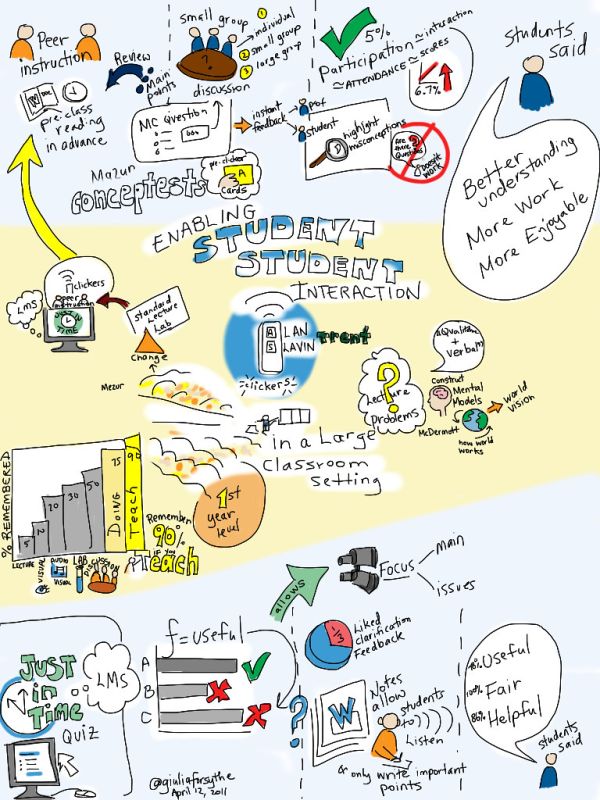 Peer
instruction
Review
Main
points
pre-class
reading
in advance
small group
1 individual
2 small group
3 large group
?
discussion
MC Question
instant
feedback
prof
student
5%
Participation ≈ interaction
≈ ATTENDANCE ≈ SCORES
6.7%
highlight
misconceptions
Are
there
Questions
?
Doesn't
work
Students
said
Better
understanding
More Work
More Enjoyable
Mazur
conceptests
pre-clicker
A
cards
ENABLING
STUDENT
STUDENT
INTERACTION
clickers
peer
instruction
LMS
JUST in
TIME
standard
Lecture
Lab
change
A
S
ALAN
SLAVIN
Trent
clickers
Mezur
Lecture
?
problems
Qualitative
+
verbal
Construct
Mental
Models
McDermott
world
vision
how world
works
in a Large
classroom
setting
1st
year
level
% REMEMBERED
5
20
30
50
75
90
DOING
Teach
LECTURE
VISUAL
AUDIO
VISUAL
LAB
DISCUSSION
Remember
90%
IF YOU
Teach
allows
Focus
main
issues
JUST
in
TIME
QUIZ
LMS
f=useful
A
B
C
1/3
Liked
clarification
Feedback
?
W
Notes
allow
students
to
Listen
or only write important
points
Useful
Fair
Helpful
students
said
@giuliaforsythe
April 12, 2011